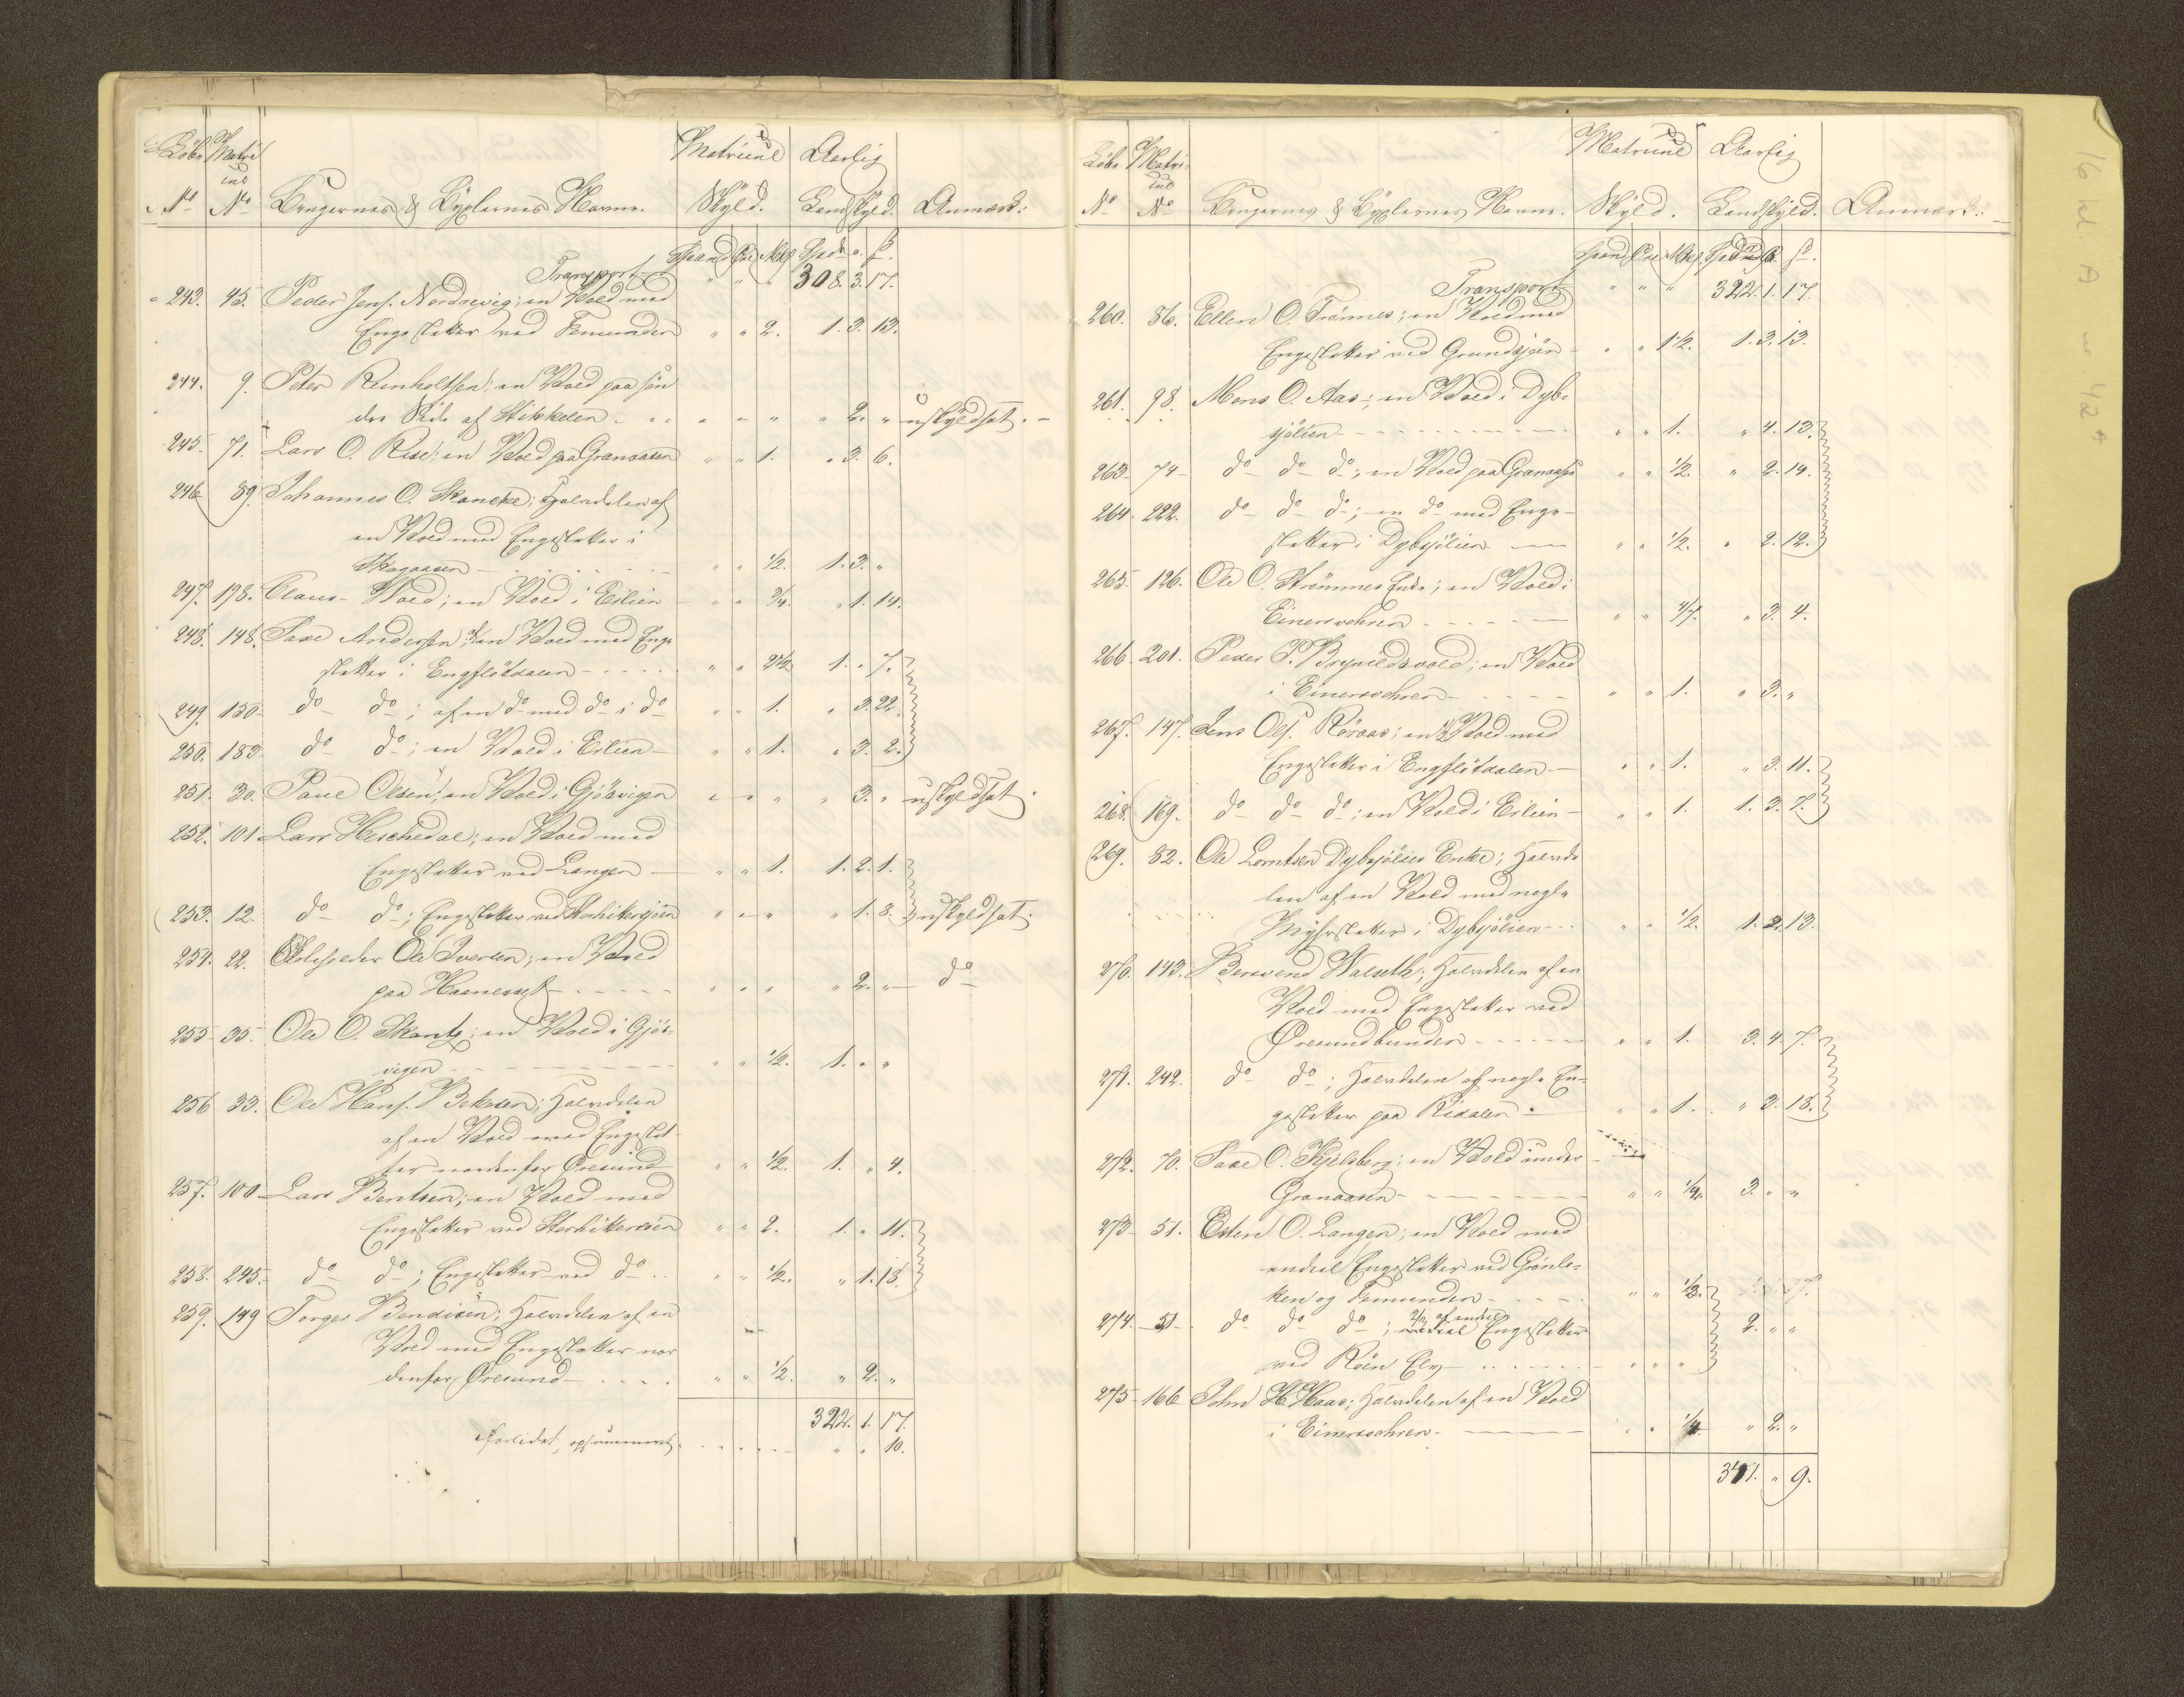 Løbe Matri Matricul Aarlig
cul
No. No. Brugernes & Byxlernes Navne. Skyld. Landskyld. Anmærk:
Spand Øre Mkl Spd. o. ß.
Transport " " " 308. 3. 17.
243. 45. Peder Jens. Nordvig; en Vold med
Engesletter ved Femunden " " 2. 1. 3. 13.
244. 9. Peter Reinholtsen; en Vold paa søn
dre Side af Stikkelen - " " " " 2. " uskyldsat. -
245. 71. Lars O. Rise; en Vold paa Granaasen " " 1. " 3. 6.
246 89. Johannes O. Skancke; Halvdelen af
en Vold med Engesletter i
Skagaasen " " 1/2. 1. 3. "
247. 198. Claus Wold; en Vold i Eilien " " 3/4. " 1. 14.
248. 148. Paul Andersen; en Vold med Enge
sletter i Engflötdalen " " 2 1/2 1. " 7.
249. 150 do do; af en do med do i do " " 1. " 3. 22.
250. 183 do do; en Vold i Eilien " " 1. " 3. 2.
251. 30. Paul Olsen; en Vold i Gjösvigen " " " " 3. " uskyldsat.
252. 101 Lars Heschedal; en Vold med
Engesletter ved Langen " " 1. 1. 2. 1.
253. 12. do do; Engesletter ved Storhittersjøen " " " " 1. 8. uskyldsat.
254. 22. Skoleholder Ole Iversen; en Vold
paa Haanesset " " " " 2. " do
255 35. Ole O. Skantz; en Vold i Gjös-
vigen " " 1/2. 1. " "
256 33. Ole Hans. Bekosen; Halvdelen
af en Vold med Engeslet-
ter nordenfor Øresund " " 1/2. 1. " 4.
257. 100. Lars Bentsen; en Vold med
Engesletter ved Storhittersøen " " 2. 1. " 11.
258. 245. do do; Engesletter ved do " " 1/2. " 1. 18.
259. 149 Torger Bendixen; Halvdelen af en
Vold med Engesletter nor
denfor Øresund " " 1/2. " 2. "
322. 1. 17.
forlidet opsummeret " " 10.
Løbe Matri- Matricul Aarlig
cul
No. No. Brugernes & Byxlernes Navne. Skyld. Landskyld. Anmærk:
Spand Øre Mkl. Spd. o. ß.
Transport " " " 322. 1. 17.
260. 86. Ellen O. Trönnes; en Vold med
Engesletter ved Grundsjøen " " 1 1/2. 1. 3. 13.
261. 98. Mons O. Aas; en Vold i Dyb-
sjölien " " 1. " 4. 13.
263 74 do do do; en Vold paa Granaasen " " 1/2. " 2. 14.
264. 222. do do do; en do med Enge-
sletter i Dybsjölien " " 1/2. " 2. 12.
265 126. Ole O. Strømmes Enke; en Vold i
Einersvohren " " " 3. 4.
266 201. Peder P. Brynildsvold; en Vold
i Einersvohren " " 1. " 3. "
267. 147. Jens Ols. Röraas; en Vold med
Engesletter i Engflötdalen " " 1. " 3. 11.
268. 169. do do do; en Vold i Eilien " " 1. 1. 3. 7.
269. 82. Ole Lorntsen Dybsjölies Enke; Halvde
len af en Vold med nogle
Myhrsletter i Dybsjölien " " 1/2. 1. 2. 13.
270. 143. Berwend Walseth; Halvdelen af en
Vold med Engesletter ved
Øresundbunden " " 1. 3. 4. 7.
271. 242. do do; Halvdelen af nogle En-
gesletter paa Kidalen " " 1. " 3. 18.
272. 70. Paul O. Kjelsberg; en Vold under
Granaasen " " 1/2. 3. " "
273 51. Esten O. Langen; en Vold med
endeel Engesletter ved Grönle-
ken og Femunden " " 1/2.
274. 51 do do do; 2/3 af endel Engesletter
ved Röen Elv " " " 2. " "
275 166 John H. Haas; Halvdelen af en Vold
i Einersvohren " " 1/4 " 2. "
341. " 9.